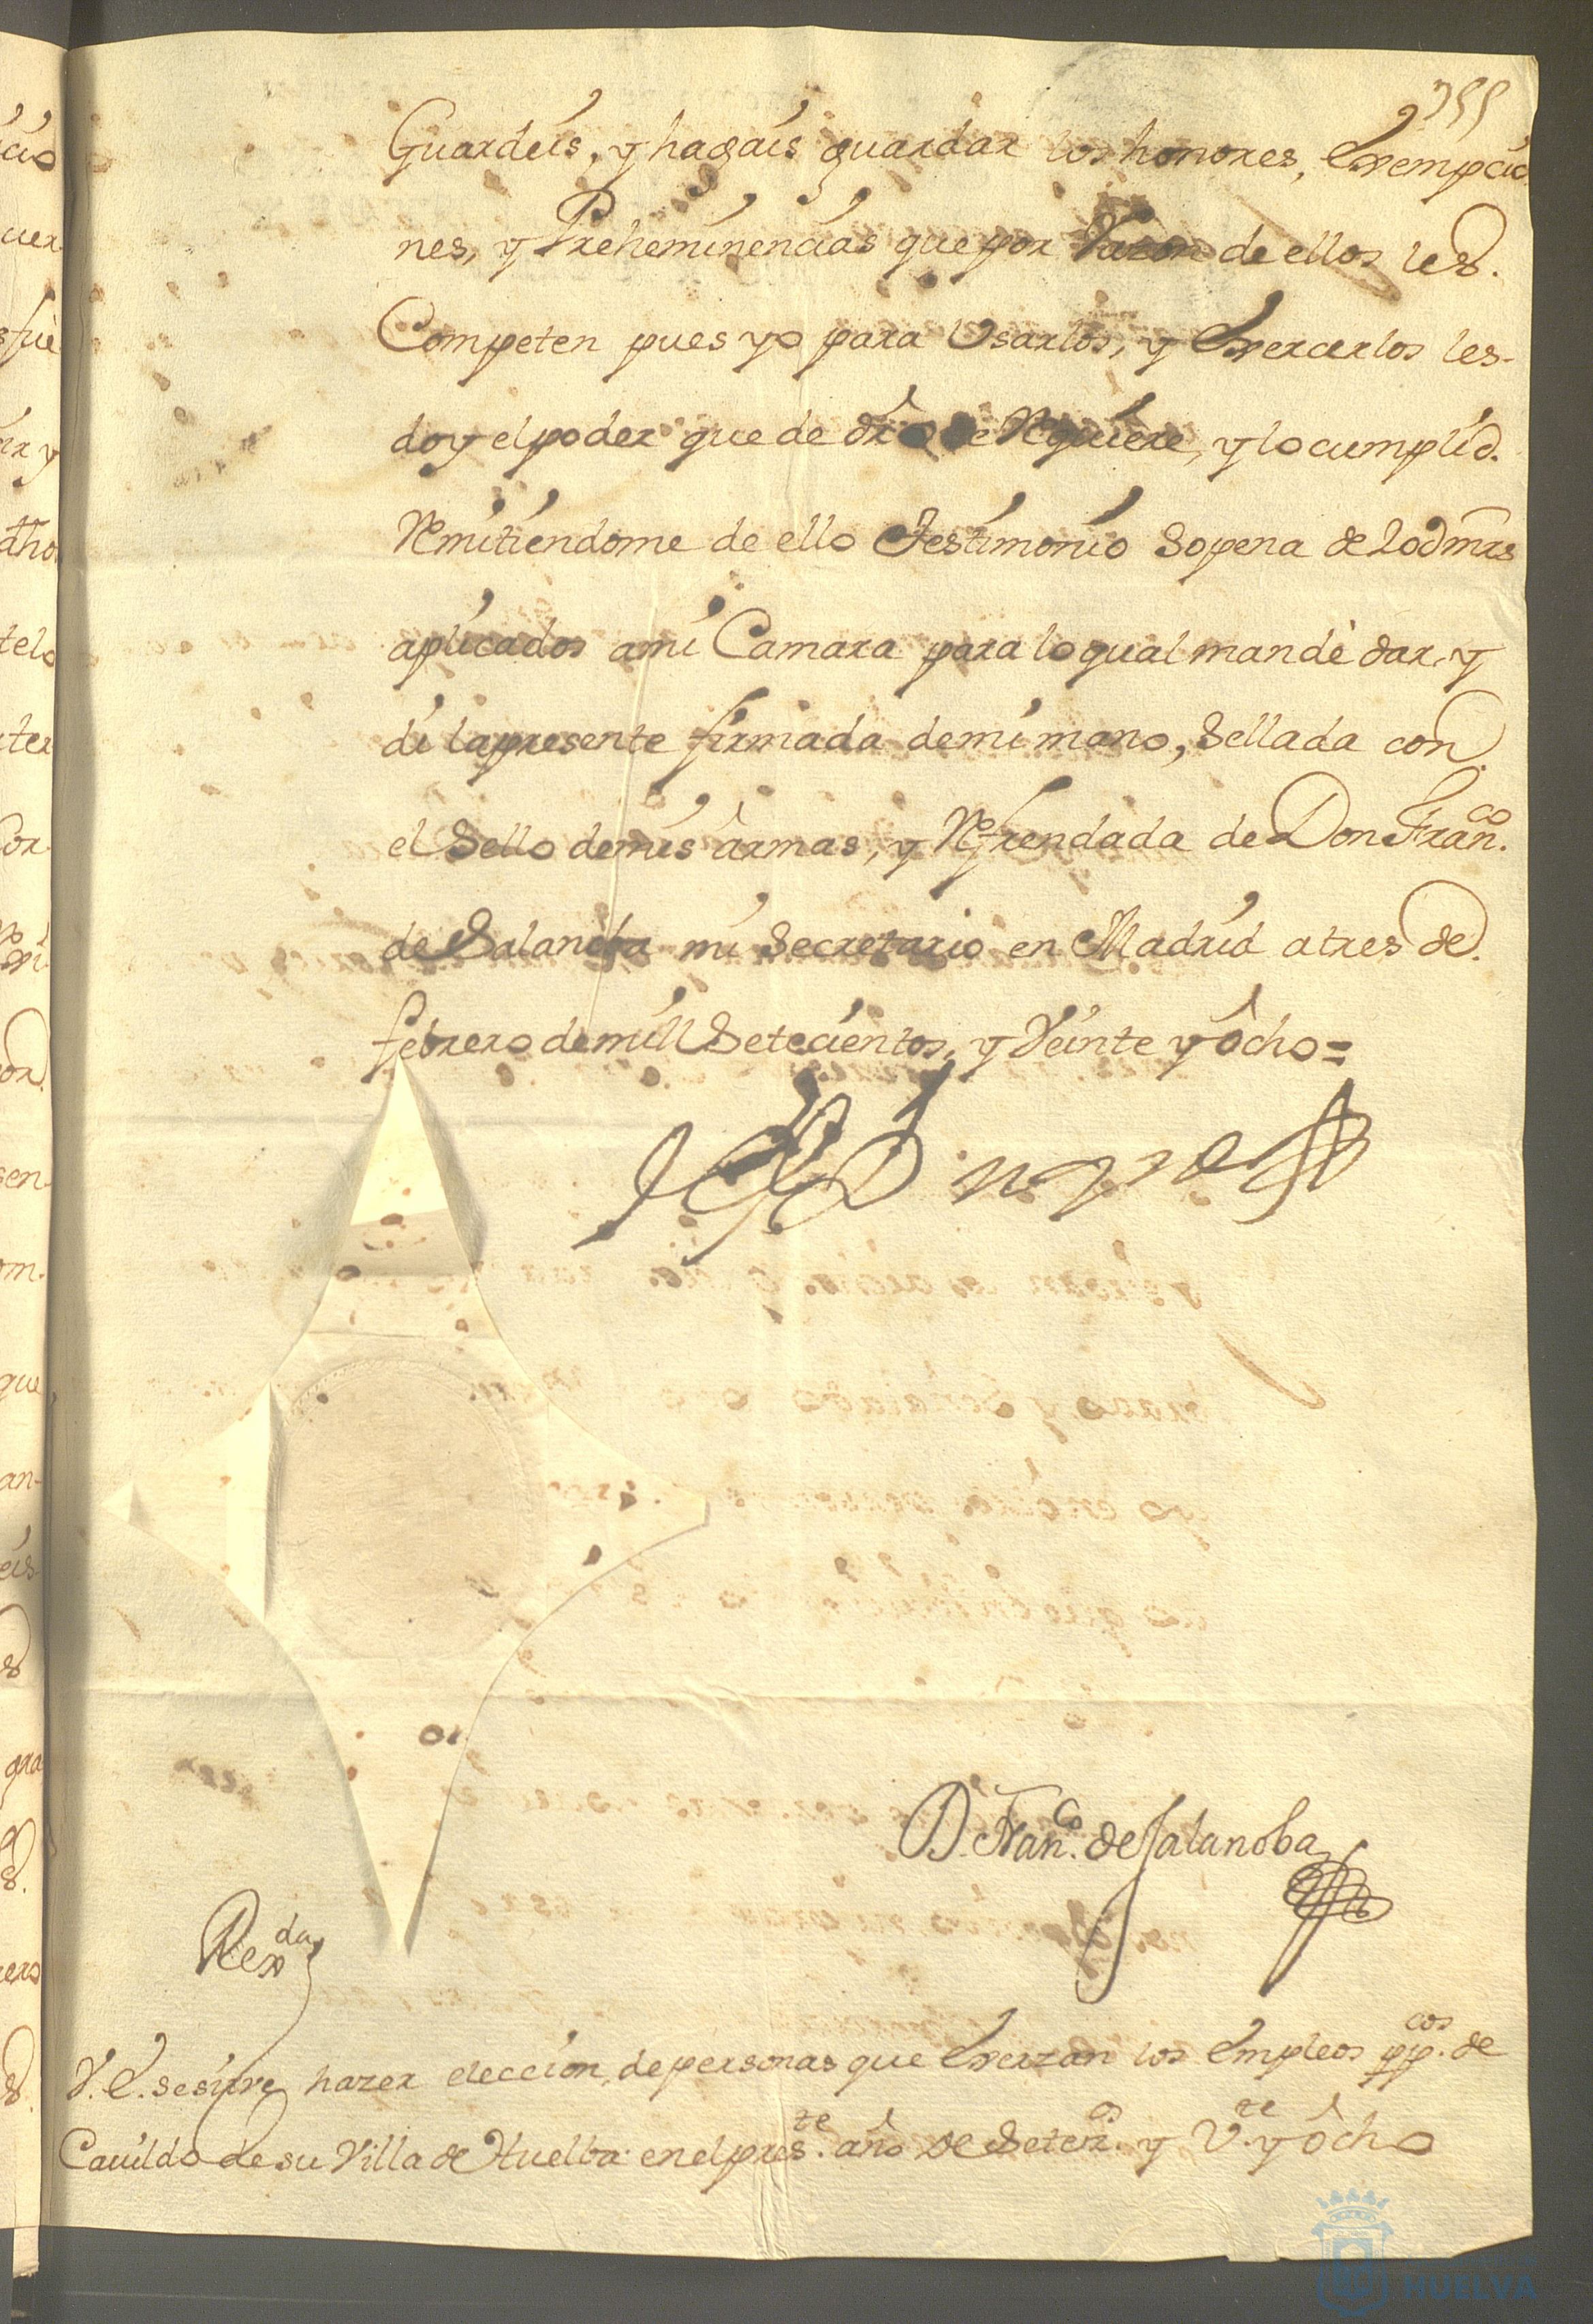 355
Guardeis, y hagais guardar los honores, Exempcio
nes, y Preheminencias que por Razon de ellos les.
Competen pues yo para Usarlos, y Exercerlos les-
doy el poder que de dro se Requiere, y lo cumplid.
Remitiendome de ello Testimonio sopena de 20d mrs
aplicados a mi Camara para lo qual mandè dar, y
di la presente firmada de mi mano, Sellada con
el Sello de mis armas, y Refrendada de Don Fran.co
de Salanoba mi Secretario en Madrid a tres de.
febrero de mill Setecientos, y Veinte y ôcho=
D. Fran.co de Salanoba
Rex.da
V.E. se sirve hazer eleccion, de personas que Exerzan los Empleos pp.cos de
Cauildo de su Villa de Huelba en el pres.te año de Setez.os y V.te y ôcho
HUELVA